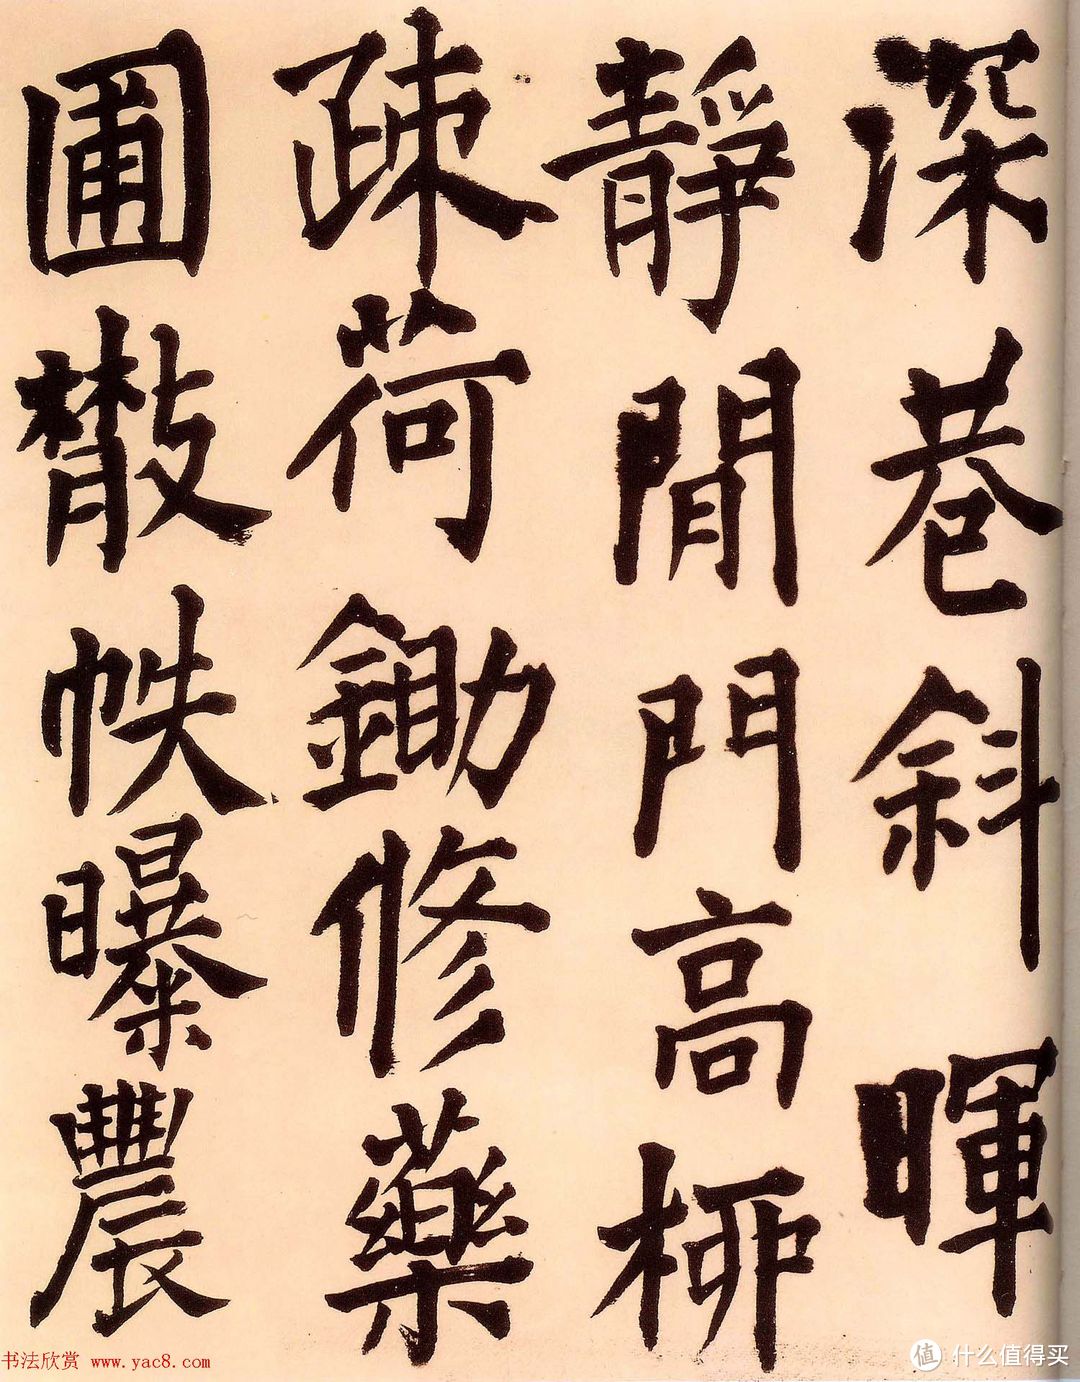 深巷斜暉
靜閒門高柳
疎荷鋤修藥
圃散帙曝農
书法欣赏 www.yac8.com
值 什么值得买